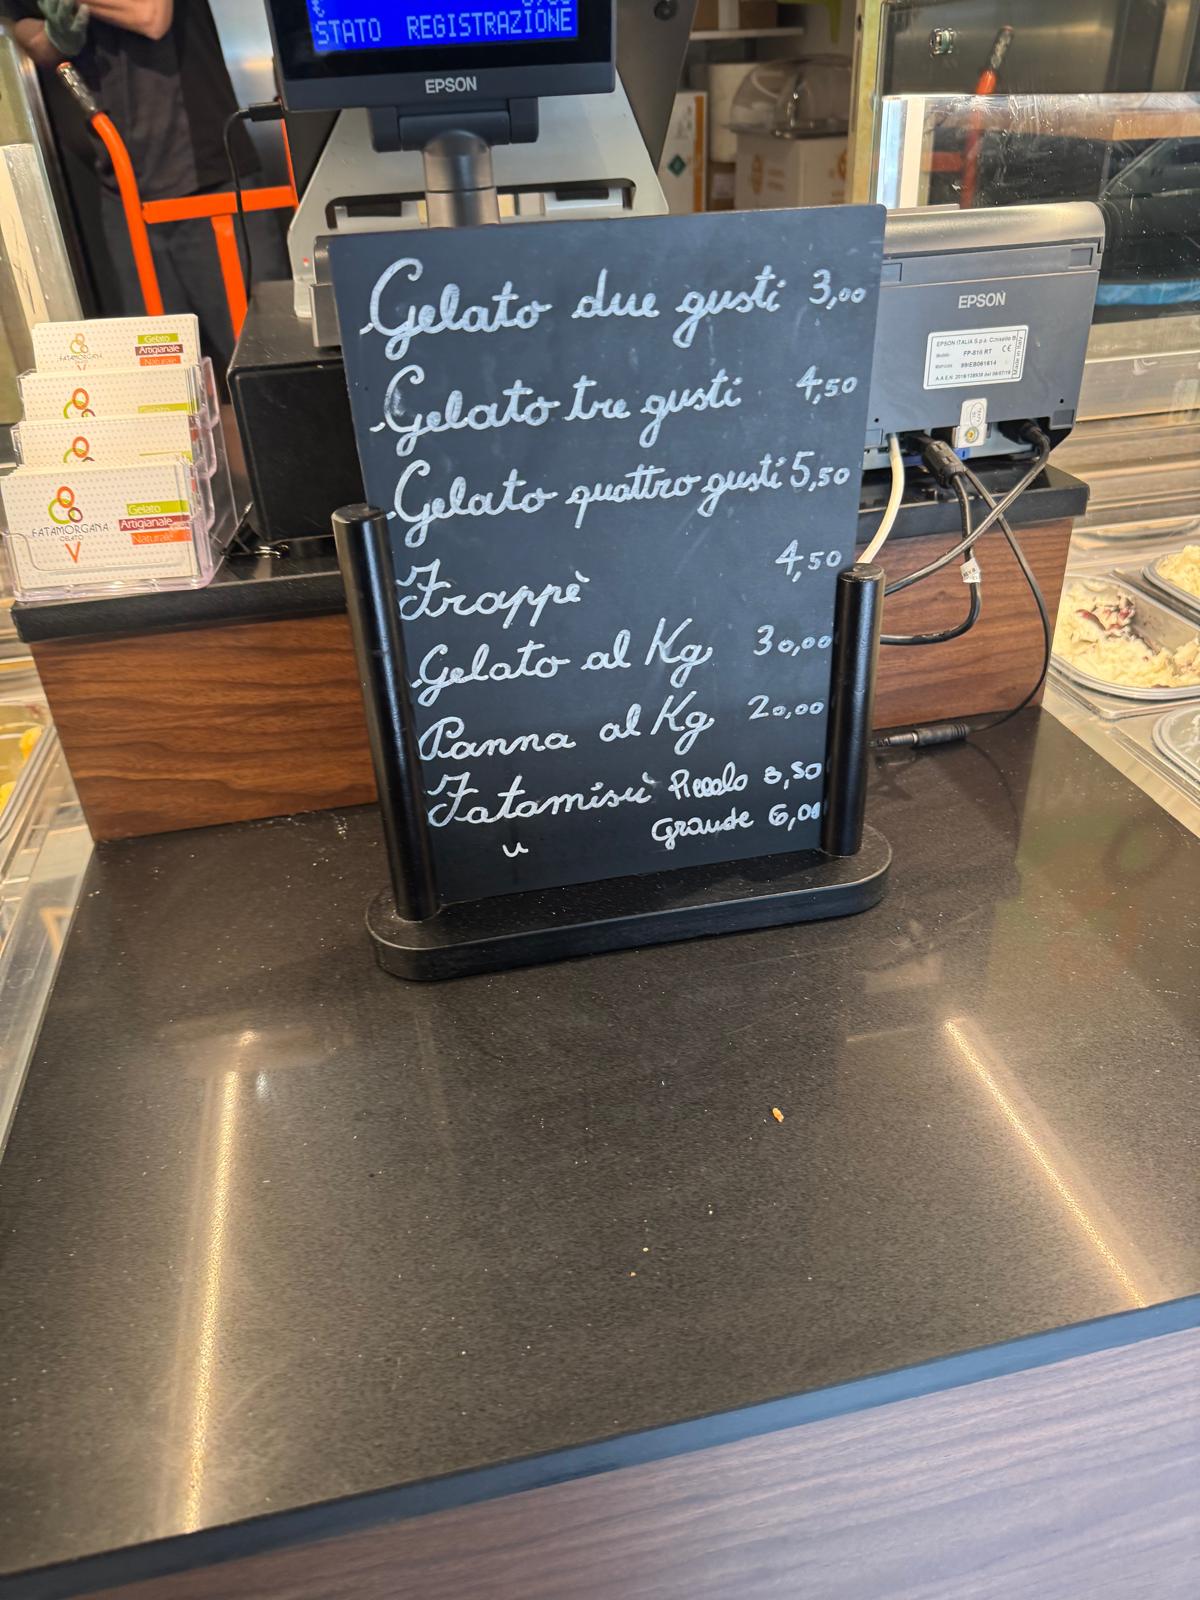 STATO REGISTRAZIONE
EPSON
Gelato due gusti 3,00
Gelato tre gusti 4,50
Gelato quattro gusti 5,50
Frappè 4,50
Gelato al Kg 30,00
Panna al Kg 20,00
Fatamisù Piccolo 3,50
u Grande 6,00
EPSON
EPSON ITALIA S.p.a.
FP-81II RT
Made in Italy
Gelato
Artigianale
Naturale
FATAMORGANA
GELATO
Gelato
Artigianale
Naturale